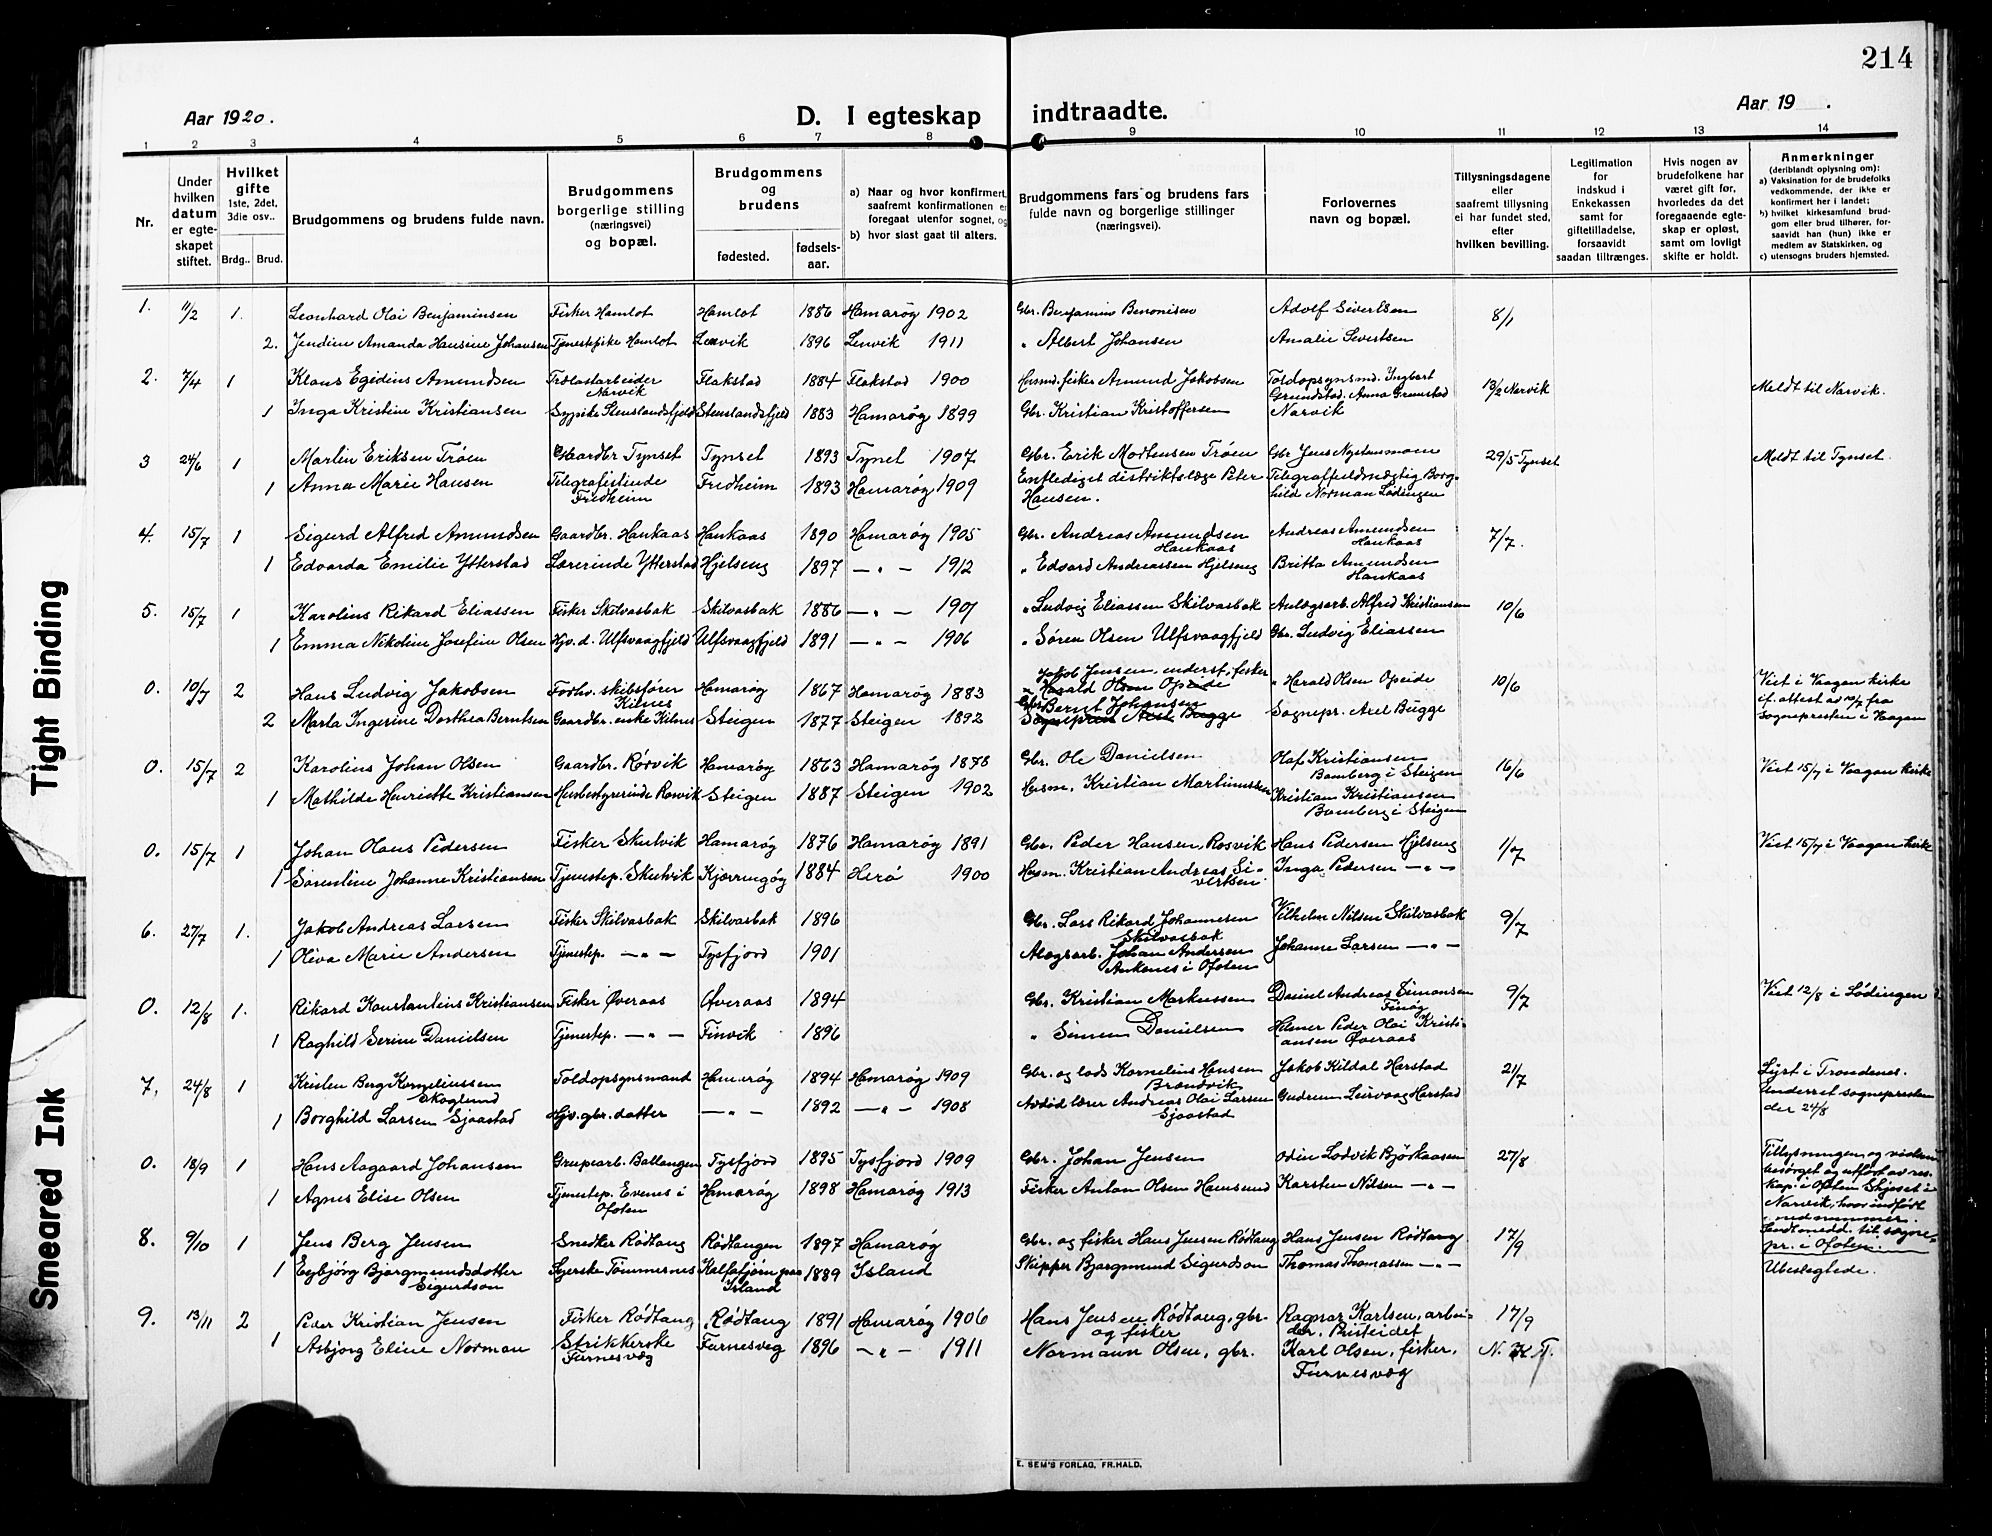 214
Aar 1920. D. I egteskap indtraadte. Aar 19 .
1 2 3 4 5 6 7 8 9 10 11 12 13 14
Nr.
Under hvilken datum er egteskapet stiftet.
Hvilket gifte 1ste, 2det, 3die osv..
Brdg.. Brud.
Brudgommens og brudens fulde navn.
Brudgommens borgerlige stilling (næringsvei) og bopæl.
Brudgommens og brudens
fødested. fødsels-aar.
a) Naar og hvor konfirmert, saafremt konfirmationen er foregaat utenfor sognet, og
b) hvor sidst gaat til alters.
Brudgommens fars og brudens fars fulde navn og borgerlige stillinger (næringsvei).
Forlovernes navn og bopæl.
Tillysningsdagene eller saafremt tillysning ei har fundet sted, efter hvilken bevilling.
Legitimation for indskud i Enkekassen samt for giftetilladelse, forsaavidt saadan tiltrænges.
Hvis nogen av brudefolkene har været gift før, hvorledes da det foregaaende egteskap er opløst, samt om lovligt skifte er holdt.
Anmerkninger (deriblandt oplysning om):
a) Vaksination for de brudefolks vedkommende, der ikke er konfirmert her i landet;
b) hvilket kirkesamfund brudgom eller brud tilhører, forsaavidt han (hun) ikke er medlem av Statskirken, og
c) utensogns bruders hjemsted.
1. 11/2 1. Leonhard Olai Benjaminsen Fisker Hamlot Hamlot 1886 Hamarøy 1902 Gbr. Benjamin Benonisen Adolf Sivertsen 8/1
2. Jendine Amanda Hansine Johansen Tjenestepike Hamlot Lenvik 1896 Lenvik 1911 " Albert Johansen Amalie Sivertsen
2. 7/4 1 Klaus Egidius Amundsen Trælastarbeider Narvik Flakstad 1884 Flakstad 1900 Husmd. fisker Amund Jakobsen Toldopsynsmd. Ingbert Grundstad. Anna Grundstad Narvik 13/2 Narvik Meldt til Narvik.
1 Inga Kristine Kristiansen Sypike Stenslandsfjeld Stenslandsfjeld 1883 Hamarøy 1899 Gbr. Kristian Kristoffersen
3 24/6 1 Martin Eriksen Trøen Gaardbr Tynset Tynset 1893 Tynset 1907 Gbr. Erik Mortensen Trøen Gbr Jens Nystumoen 29/5 Tynset Meldt til Tynset.
1 Anna Marie Hansen Telegrafistinde Fredheim Fredheim 1893 Hamarøy 1909 Entlediget distriktslæge Peter Hansen. Telegraffuldmægtig Borghild Norman Lødingen
4. 15/7 1 Sigurd Alfred Amundsen Gaardbr. Haukaas Haukaas 1890 Hamarøy 1905 Gbr. Andreas Amundsen Haukaas Andreas Amundsen Haukaas 7/7.
1 Edvarda Emilie Ytterstad Lærerinde Ytterstad Hjelseng 1897 — " — 1912 " Edvard Andreassen Hjelseng Britta Amundsen Haukaas
5. 15/7 1 Karolius Rikard Eliassen Fisker Skilvasbak Skilvasbak 1886 — " — 1901 " Ludvig Eliassen Skilvasbak Anlægsarb. Alfred Kristiansen 10/6
1 Emma Nikoline Josefine Olsen Hjv. d. Ulfsvaagfjeld Ulfsvaagfjeld 1891 — " — 1906 " Søren Olsen Ulfsvaagfjeld Gbr. Ludvig Eliassen
0. 10/7 2 Hans Ludvig Jakobsen Forhv. skibsfører Kilnes Hamarøy 1867 Hamarøy 1883 Jakob Jensen, underst. fisker Harald Olsen Opeide " Harald Olsen Opeide 10/6 Viet i Vaagan kirke if. attest av 10/7 fra sognepresten i Vaagan
2 Marta Ingerine Dorthea Berntsen Gaardbr. enke Kilnes Steigen 1877 Steigen 1892 Gbr. Bernt Johansen Sogneprest Axel Bugge Sognepr. Axel Bugge
0. 15/7 2 Karolius Johan Olsen Gaardbr. Rørvik Hamarøy 1863 Hamarøy 1878 Gbr. Ole Danielsen Olaf Kristiansen Bomberg i Steigen 16/6 Viet 15/7 i Vaagan kirke
1 Mathilde Henriette Kristiansen Husbestyrerinde Rørvik Steigen 1887 Steigen 1902 Husm. Kristian Martinussen Kristian Kristiansen Bomberg i Steigen
0. 15/7 1 Johan Olaus Pedersen Fisker Skutvik Hamarøy 1876 Hamarøy 1891 Gbr. Peder Hansen, Rosvik Hans Pedersen Hjelseng 1/7 Viet 15/7 i Vaagan kirke
1 Sørentine Johanne Kristiansen Tjenestep. Skutvik Kjærringøy 1884 Herø 1900 Husm. Kristian Andreas Sivertsen Inga Pedersen — " —
6. 27/7 1. Jakob Andreas Larsen Fisker Skilvasbak Skilvasbak 1896 Gbr. Lars Rikard Johannesen Skilvasbak Vilhelm Nilsen Skilvasbak 9/7
1 Oliva Marie Andersen Tjenestep. — " — Tysfjord 1901 Alægsarb. Johan Andersen Ankenes i Ofoten Johanne Larsen — " —
0. 12/8 1. Rikard Konstantius Kristiansen Fisker Øveraas Øveraas 1894 Gbr. Kristian Markussen Daniel Andreas Simonsen Finøy 9/7 Viet 12/8 i Lødingen
1 Raghild Serine Danielsen Tjenestep. — " — Finvik 1896 " Simen Danielsen Helmer Peder Olai Kristiansen Øveraas
7, 24/8 1 Kristen Berg Korneliussen Skoglund Toldopsynsmand Hamarøy 1894 Hamarøy 1909 Gbr. og lods Kornelius Hansen Brandvik Jakob Kildal Harstad 21/7 Lyst i Trondenes. Underret sognepresten der 24/8
1 Borghild Larsen Sjaastad Hjv. gbr. datter — " — 1892 — " — 1908 Avdød lærer Andreas Olai Larsen Sjaastad Gudrun Leirvaag Harstad
0. 18/9 1 Hans Aagaard Johansen Grupearb. Ballangen Tysfjord 1895 Tysfjord 1909 Gbr. Johan Jensen Odin Lodvik Bjørkaasen 27/8 Tillysningen og vielsen besørget og utført av res. kap. i Ofoten Skjeset i Narvik, hvor indført med nummer. Sendt medd. til sognepr. i Ofoten.
1 Agnes Elise Olsen Tjenestep. Evenes i Ofoten Hamarøy 1898 Hamarøy 1913 Fisker Anton Olsen Hamsund Karsten Nilsen — " —
8. 9/10 1 Jens Berg Jensen Snedker Rødtang Rødtangen 1897 Hamarøy Gbr. og fisker Hans Jensen Rødtang Hans Jensen Rødtang 17/9
1 Eybjörg Bjargmundsdotter Sigurdson Syerske Tømmernes Kalfafjørn paa Island 1889 Island Skipper Bjargmund Sigurdson Thomas Thomassen — " — Ubeslegtede.
9. 13/11 2 Peder Kristian Jensen Fisker Rødtang Rødtang 1891 Hamarøy 1906 Hans Jensen Rødtang, gbr. og fisker Ragnar Karlsen, arbeider, Pristeidet 17/9
1 Asbjørg Eline Norman Strikkerske Furnesvæg Furnesveg 1896 — " — 1911 Normann Olsen, gbr. Karl Olsen, fisker, Furnesvæg N. K. T.
E. SEM'S FORLAG, FR.HALD.
Tight Binding
Smeared Ink